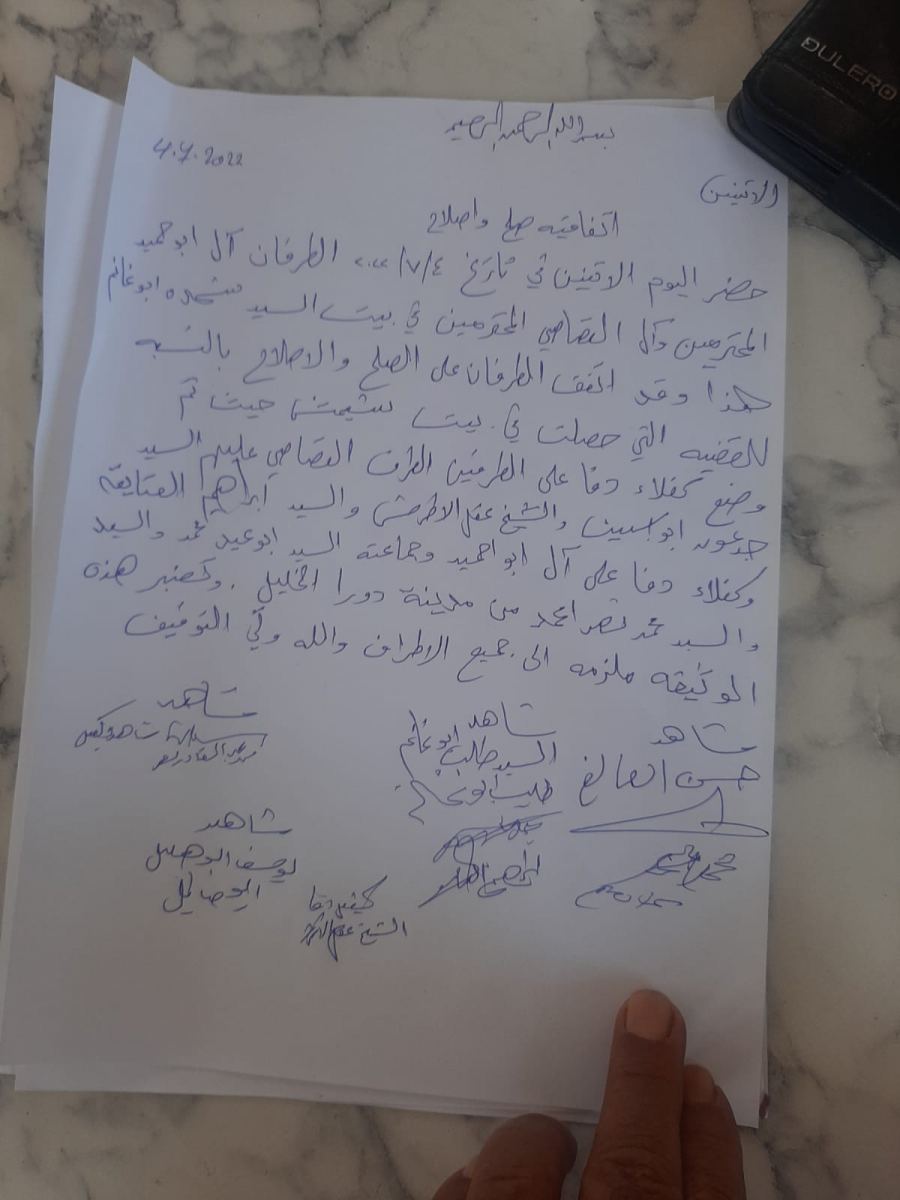 DULERO
بسم الله الرحمن الرحيم
4.7.2022
الاتنين
اتفاقيه صلح واصلاح
حضر اليوم الاتنين في تاريخ ٢٠٢٢/٧/٤ الطرفان آل ابو حميد
المحترمين وآل القصاصي المحترمين في بيت السيد شحده ابو غانم
هذا وقد اتفق الطرفان على الصلح والاصلاح بالنسبه
للقضيه التي حصلت في بيت شيمش حيث تم
وضع كفلاء دفا على الطرفين الطرف القصاصي عليهم السيد
جدعون ابو والشيخ الاطرش والسيد ابراهيم العتايقة
وكفلاء دفا على آل ابو احميد وجماعته السيد ابو عيد محمد والسيد
والسيد محمد نصر امحمد من مدينة دورا الخليل . وتعتبر هذه
الوثيقه ملزمه الى جميع الاطراف والله ولي التوفيق
شاهد
حسن
شاهد
السيد طلب ابو غانم
طلب ابو غانم
شاهد
شاهد
يوسف
كفيل دفا
الشيخ